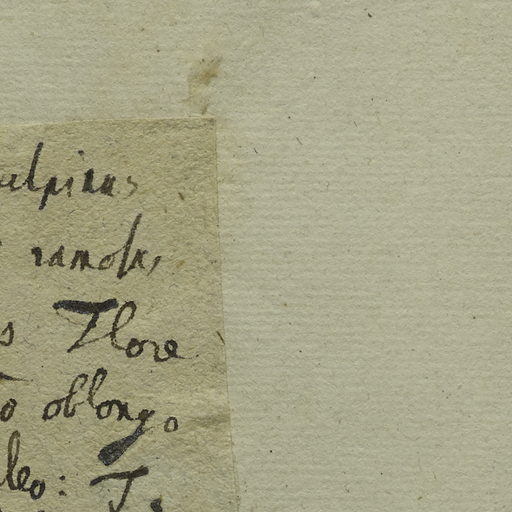 ulpinus
ramosa,
s Flore
to oblongo
leo: T.